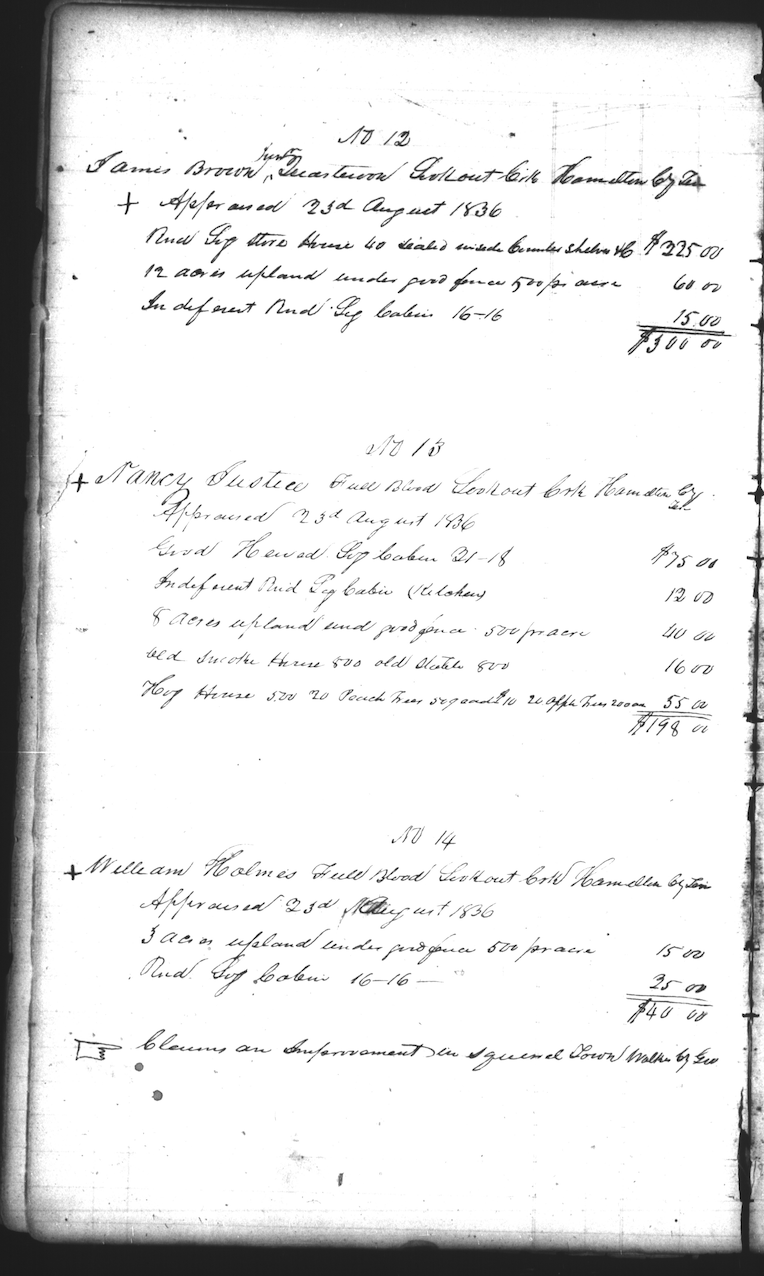 No 12
James Brown Lookout Crk Hamelton Cy Ten
+ Appraised 23d August 1836
Rnd Log store House 40 sealed inside Counter shelves &C $225 00
12 acres upland under good fence 500 pr acre 60 00
Indeferent Rnd Log Cabin 16-16 15.00
$300 00
No 13
+ Nancy Justice Full Blood Lookout Crk Hamelton Cy
Ten
Appraised 23d August 1836
Good Hewed Log Cabin 21-18 $75 00
Indeferent Rnd Log Cabin (Kitchen) 12 00
8 acres upland und good fence 500 pr acre 40 00
Old Smoke House 800 old Stable 800 16 00
Hog House 500 20 Peach Trees $10 20 Apple Trees 55 00
$198 00
No 14
+ William Holmes Full Blood Lookout Crk Hamelton Cy Ten
Appraised 23d August 1836
3 acres upland under good fence 500 pr acre 15 00
Rnd Log Cabin 16-16 — 25 00
$40 00
☞ Claims an Improvement in squirrel Town Walker Cy Geo